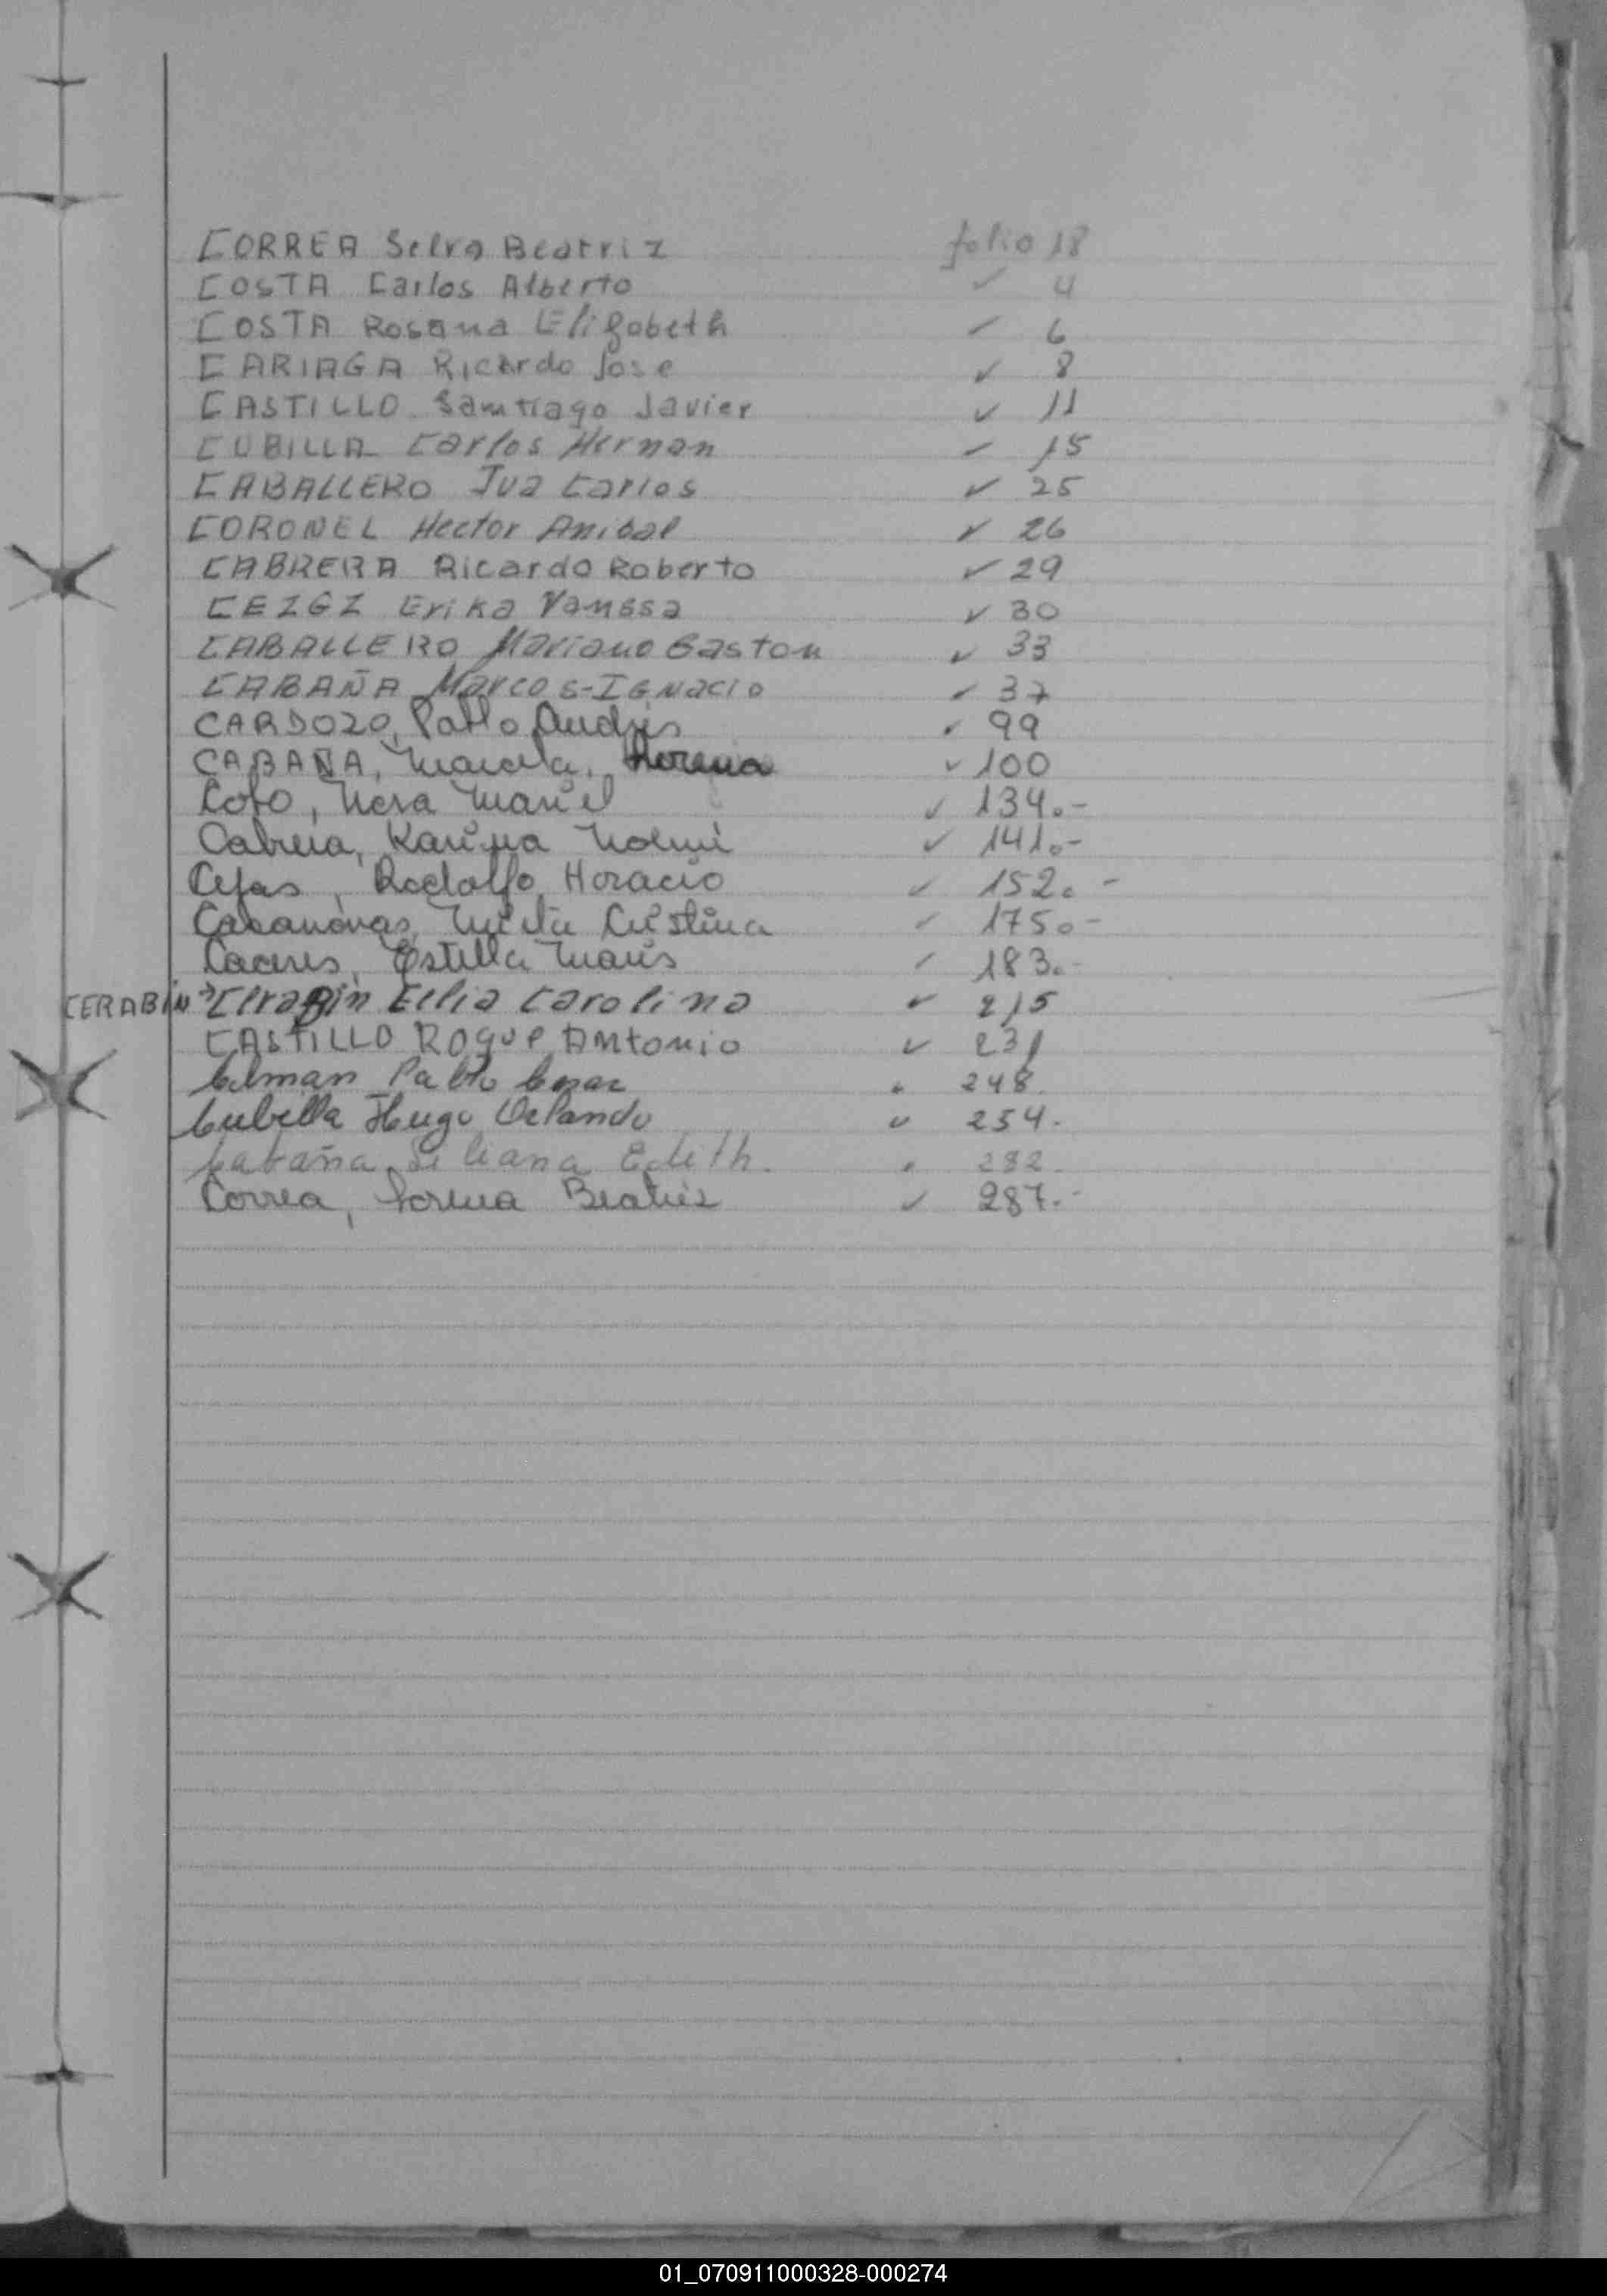 CORREA Selva Beatriz folio 18
COSTA Carlos Alberto ✓ 4
COSTA Rosana Elizabeth ✓ 6
CARIAGA Ricardo Jose ✓ 8
CASTILLO Santiago Javier ✓ 11
CUBILLA Carlos Hernan ✓ 15
CABALLERO Jua Carlos ✓ 25
CORONEL Hector Anibal ✓ 26
CABRERA Ricardo Roberto ✓ 29
Erika Vanssa ✓ 30
CABALLERO Mariano Gaston ✓ 33
CABAÑA Marcos-Ignacio ✓ 37
CARDOZO, Pablo Andres ✓ 99
CABAÑA, Marcela, Lorena ✓ 100
Mariel ✓ 134.-
Cabrera, Karina Noemi ✓ 141.-
Cejas, Rodolfo Horacio ✓ 152. -
Casanovas, Mirta Cristina ✓ 175.-
Caceres, Estella Maris ✓ 183.-
CERABIN → Cerabin Celia Carolina ✓ 215
CASTILLO Roque Antonio ✓ 231
Pablo Cesar " 248.
Cubilla Hugo Orlando " 254.
Cabaña Liliana Edith. " 282.
Correa, Lorena Beatriz ✓ 287.-
01_070911000328-000274